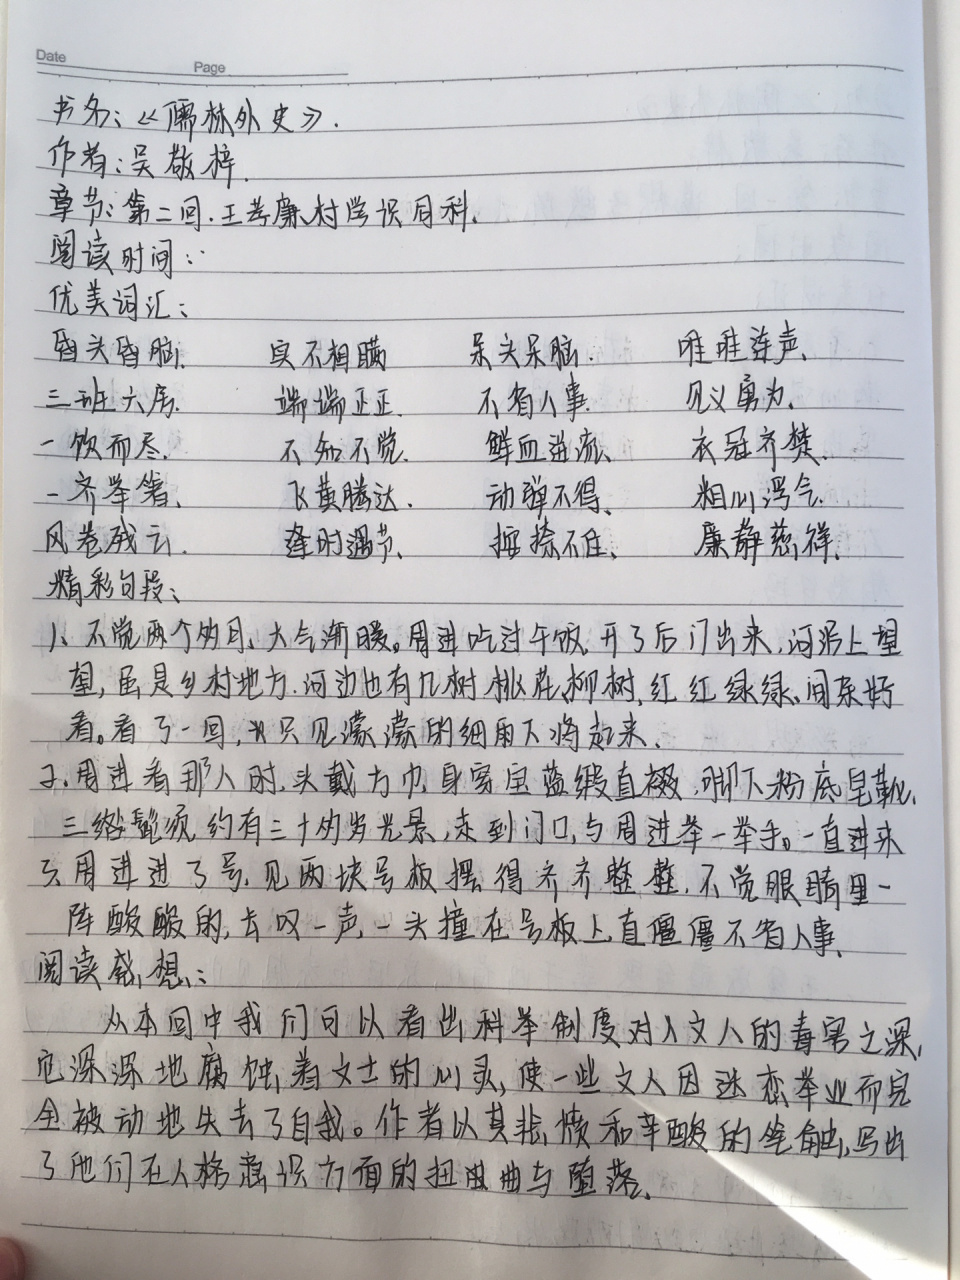 Date
Page
书名:《儒林外史》.
作者:吴敬梓.
章节:第二回.王孝廉村学识同科.
阅读时间:
优美词汇:
昏头昏脑. 实不相瞒 呆头呆脑. 唯唯连声.
三班六房. 端端正正. 不省人事. 见义勇为.
一饮而尽. 不知不觉. 鲜血迸流. 衣冠齐楚.
一齐举箸. 飞黄腾达. 动弹不得. 粗心浮气.
风卷残云. 逢时遇节. 捱捺不住. 廉静慈祥.
精彩句段:
1、不觉两个多月,天气渐暖。周进吃过午饭,开了后门出来,河沿上望
望,虽是乡村地方.河边也有几树桃花柳树,红红绿绿、间杂好
看。看了一回,只见濛濛的细雨下将起来.
2.周进看那人时,头戴方巾,身穿宝蓝缎直裰,脚下粉底皂靴,
三绺髭须,约有三十多岁光景,走到门口,与周进举一举手。一直进来
3.周进进了号,见两块号板摆得齐齐整整.不觉眼睛里一
阵酸酸的,长叹一声,一头撞在号板上,直僵僵不省人事.
阅读感想:
从本回中我们可以看出科举制度对人文人的毒害之深,
它深深地腐蚀着文士的心灵,使一些文人因迷恋举业而完
全被动地失去了自我。作者以其悲愤和辛酸的笔触,写出
了他们在人格意识方面的扭曲曲与堕落.